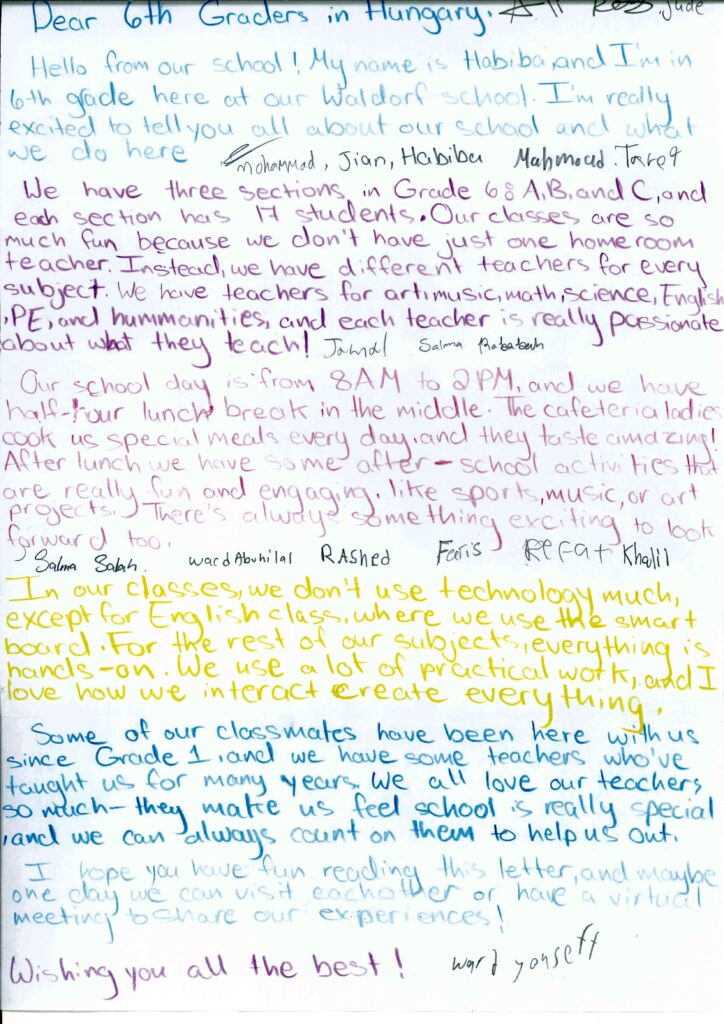 Dear 6th Graders in Hungary. Jude
Hello from our school! My name is Habiba, and I'm in
6th grade here at our Waldorf school. I'm really
excited to tell you all about our school and what
we do here Mohammad, Jian, Habiba Mahmoud Tareq
We have three sections in Grade 6: A, B, and C, and
each section has 17 students. Our classes are so
much fun because we don't have just one homeroom
teacher. Instead, we have different teachers for every
subject. We have teachers for art, music, math, science, English
, PE, and hummanities, and each teacher is really passionate
about what they teach! Salma
Our school day is from 8AM to 2PM, and we have
half-hour lunch break in the middle. The cafeteria ladies
cook us special meals every day, and they taste amazing!
After lunch we have some after-school activities that
are really fun and engaging, like sports, music, or art
projects. There's always something exciting to look
forward too.
Salma Salah. Ward Abuhilal RAshed Faris Refat Khalil
In our classes, we don't use technology much,
except for English class, where we use the smart
board. For the rest of our subjects, everything is
hands-on. We use a lot of practical work, and I
love how we interact create everything.
Some of our classmates have been here with us
since Grade 1, and we have some teachers who've
taught us for many years. We all love our teachers
so much- they make us feel school is really special
, and we can always count on them to help us out.
I hope you have fun reading this letter, and maybe
one day we can visit eachother or have a virtual
meeting to share our experiences!
Wishing you all the best! ward youseff